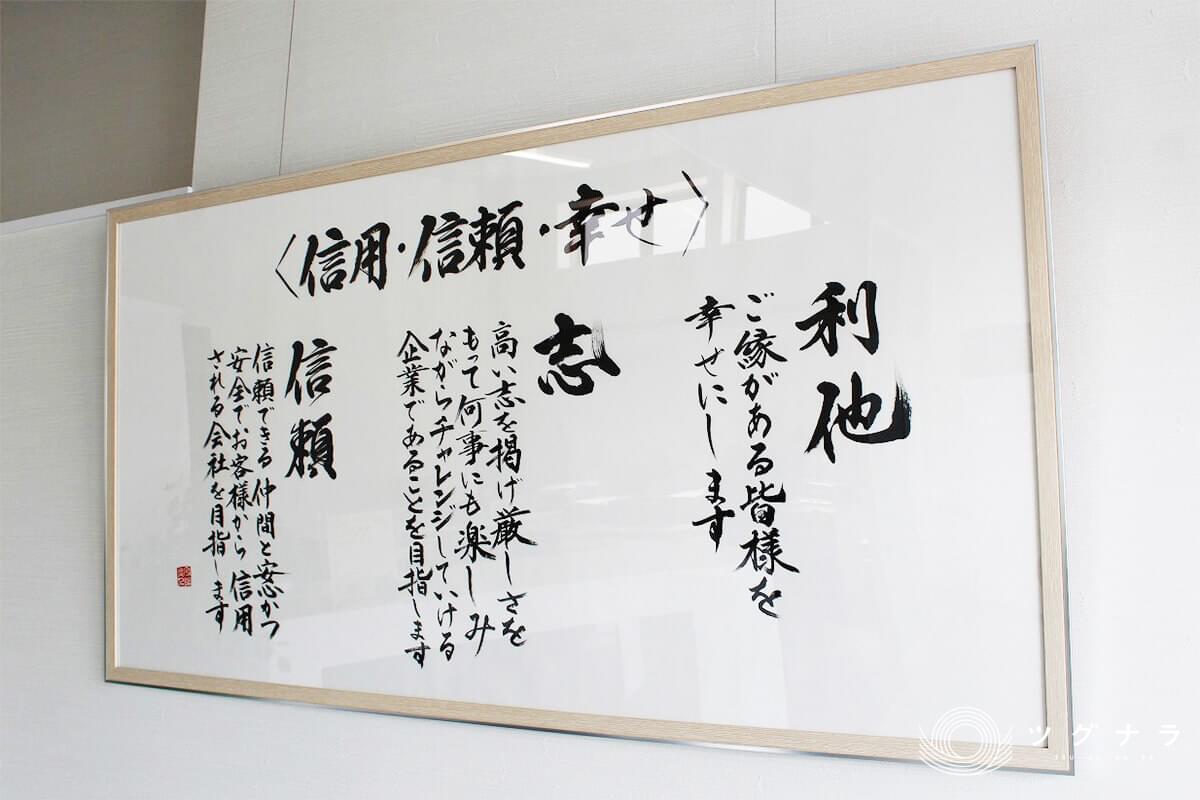 〈信用・信頼・幸せ〉
利他
ご縁がある皆様を
幸せにします
志
高い志を掲げ厳しさを
もって何事にも楽しみ
ながらチャレンジしていける
企業であることを目指します
信頼
信頼できる仲間と安心かつ
安全でお客様から信用
される会社を目指します
ツグナラ